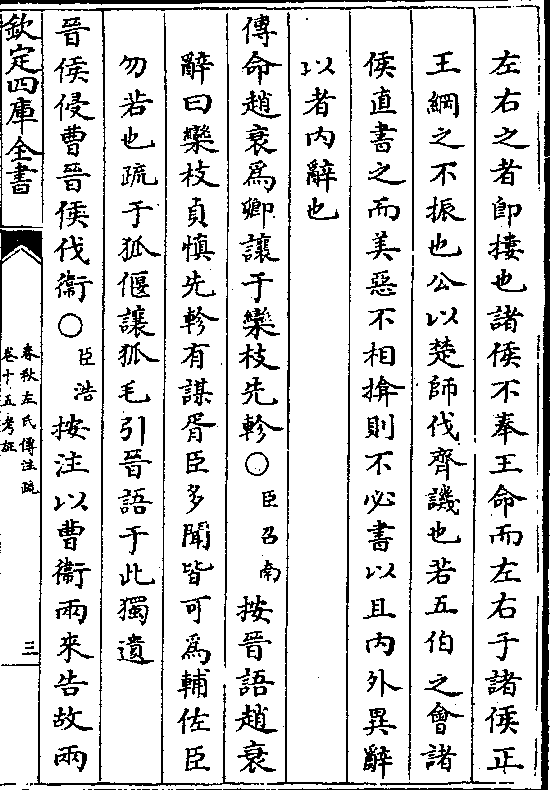 左右之者即摟也諸侯不奉王命而左右于諸侯正
王綱之不振也公以楚師伐齊譏也若五伯之會諸
侯直書之而美惡不相揜則不必書以且内外異辭
以者内辭也
傳命趙衰爲卿讓于欒枝先軫○臣召南按晉語趙衰
辭曰欒枝貞慎先軫有謀胥臣多聞皆可爲輔佐臣
勿若也疏于狐偃讓狐毛引晉語于此獨遺
晉侯侵曹晉侯伐衞○臣浩按注以曹衞兩來告故兩
欽定四庫全書
春秋左氏傳注疏
卷十五考証
三